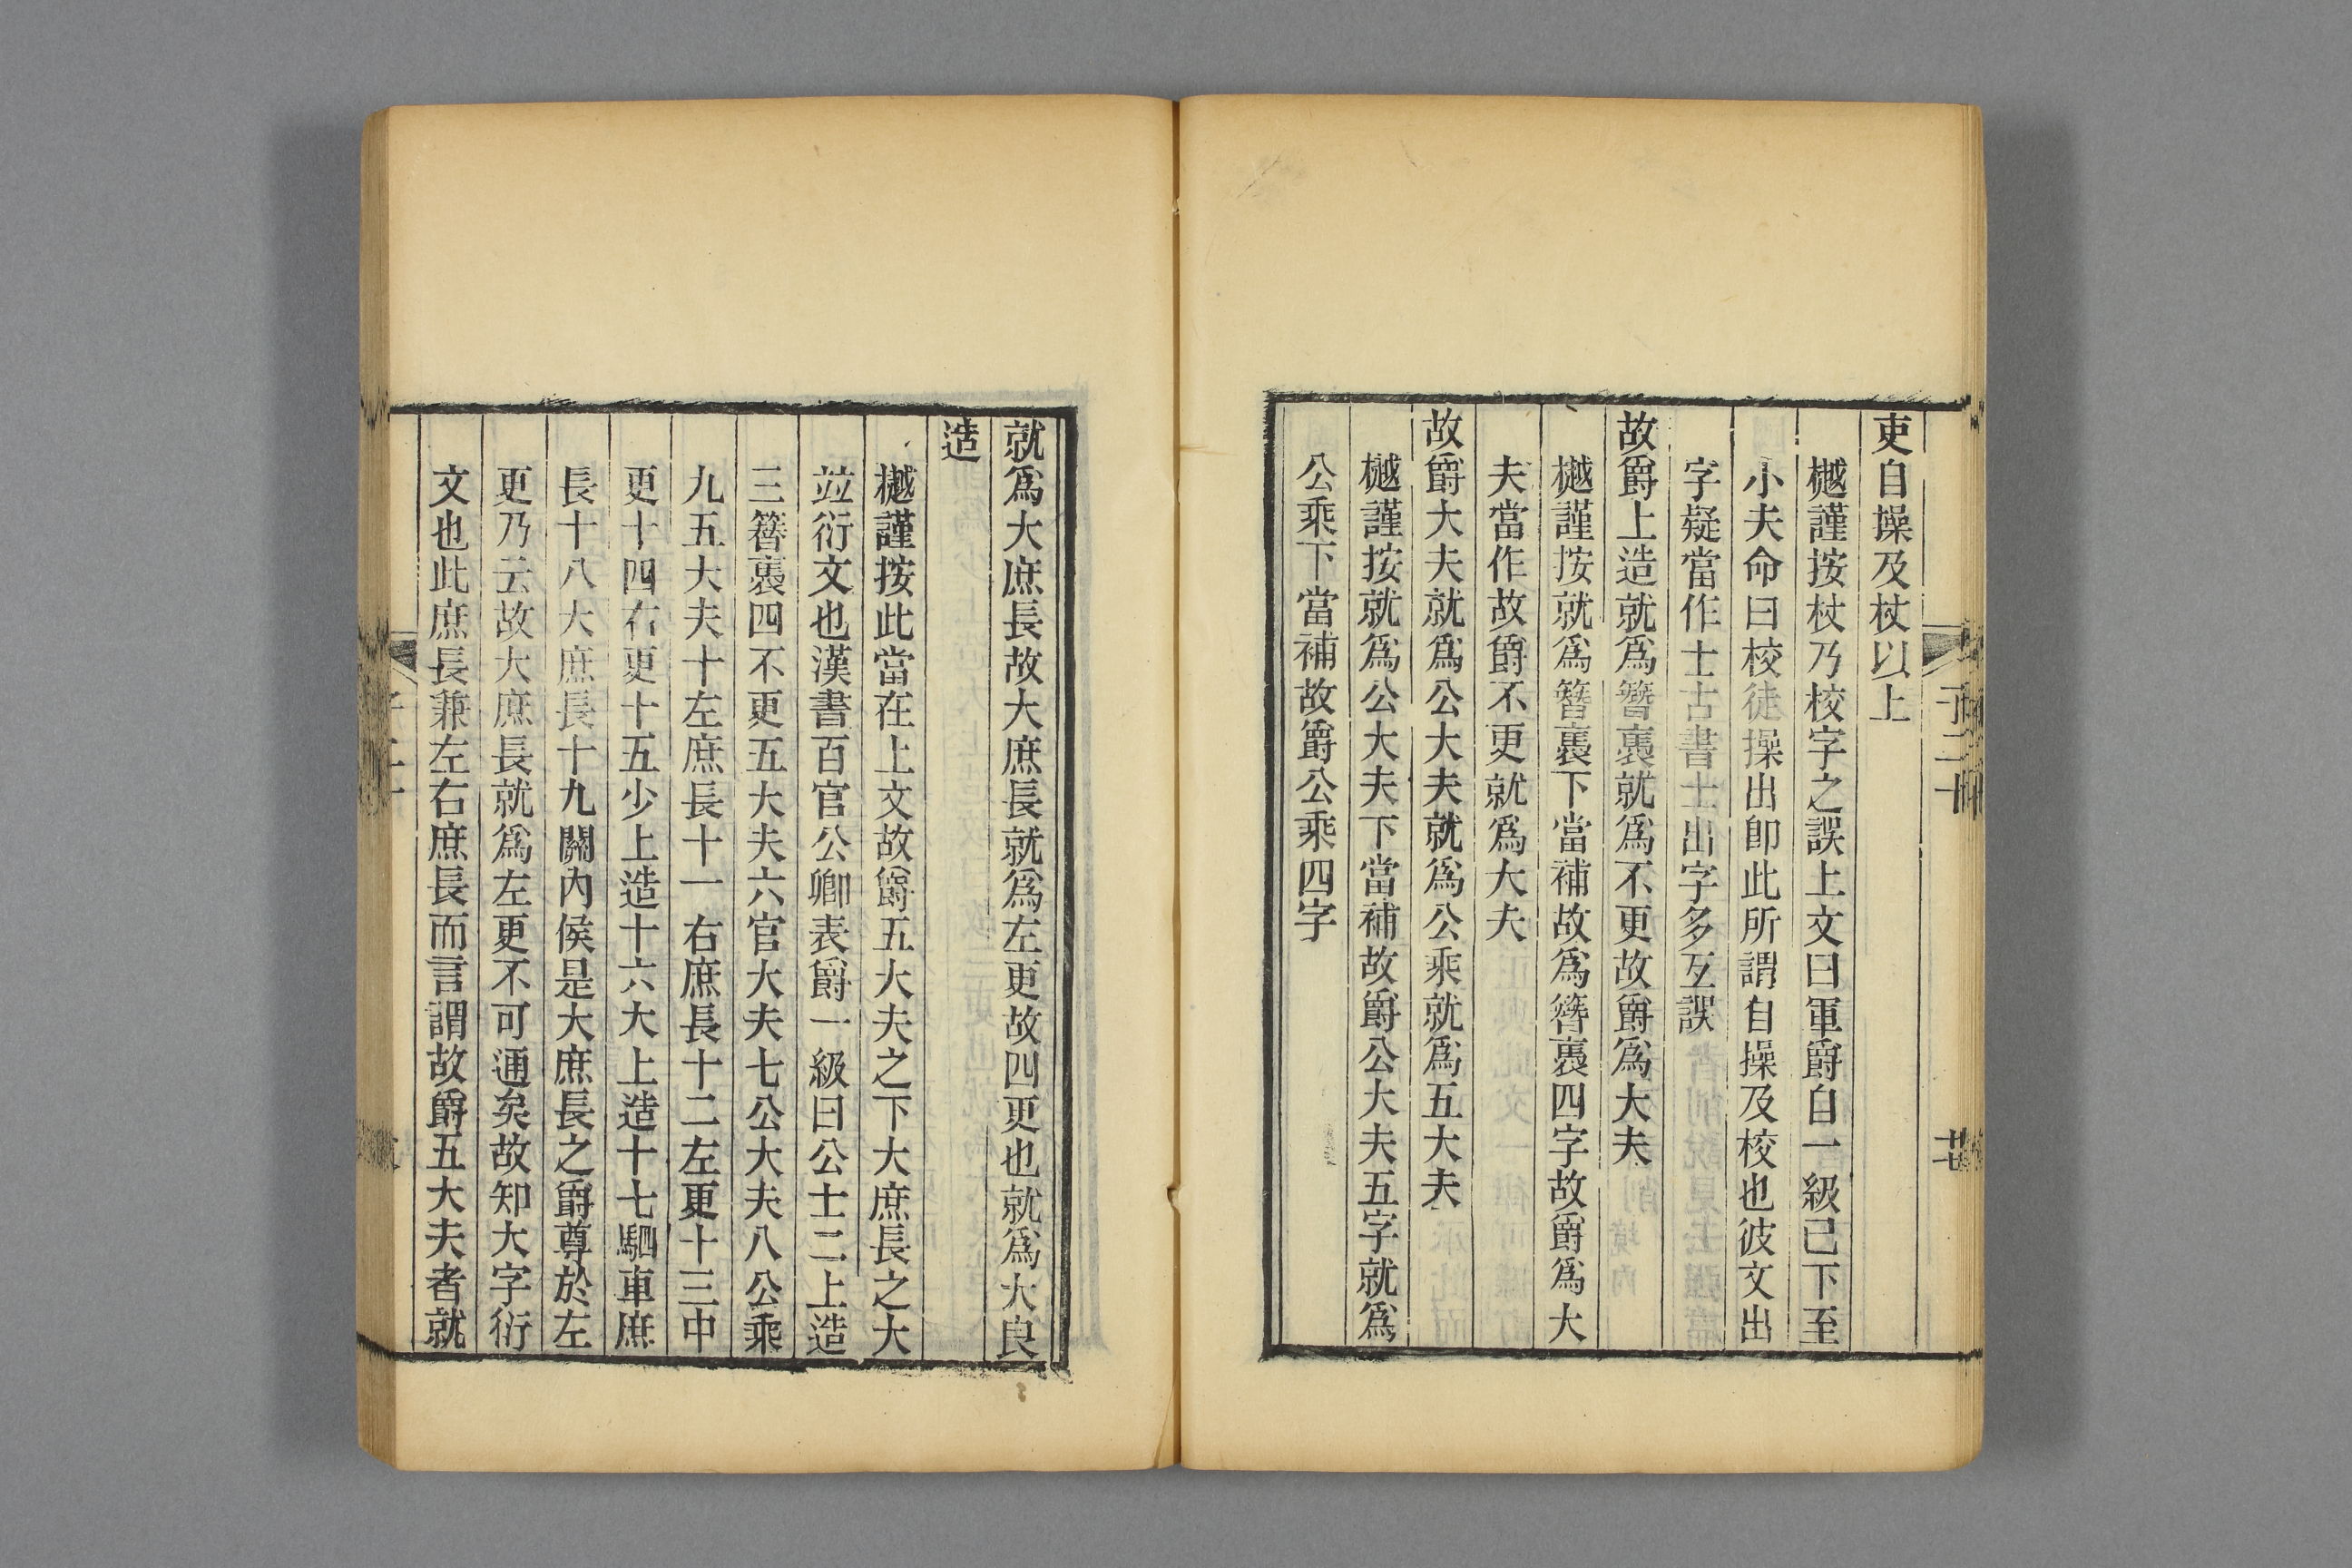 吏自操及杖以上
樾謹按杖乃校字之誤上文曰軍爵自一級已下至
小夫命曰校徒操出卽此所謂自操及校也彼文出
字疑當作士古書士出字多互誤
故爵上造就爲簪褭就爲不更故爵爲大夫
樾謹按就爲簪褭下當補故爲簪褭四字故爵爲大
夫當作故爵不更就爲大夫
故爵大夫就爲公大夫就爲公乘就爲五大夫
樾謹按就爲公大夫下當補故爵公大夫五字就爲
公乘下當補故爵公乘四字
就爲大庶長故大庶長就爲左更故四更也就爲大良
造
樾謹按此當在上文故爵五大夫之下大庶長之大
竝衍文也漢書百官公卿表爵一級曰公士二上造
三簪褭四不更五大夫六官大夫七公大夫八公乘
九五大夫十左庶長十一右庶長十二左更十三中
更十四右更十五少上造十六大上造十七駟車庶
長十八大庶長十九關內侯是大庶長之爵尊於左
更乃云故大庶長就爲左更不可通矣故知大字衍
文也此庶長兼左右庶長而言謂故爵五大夫者就